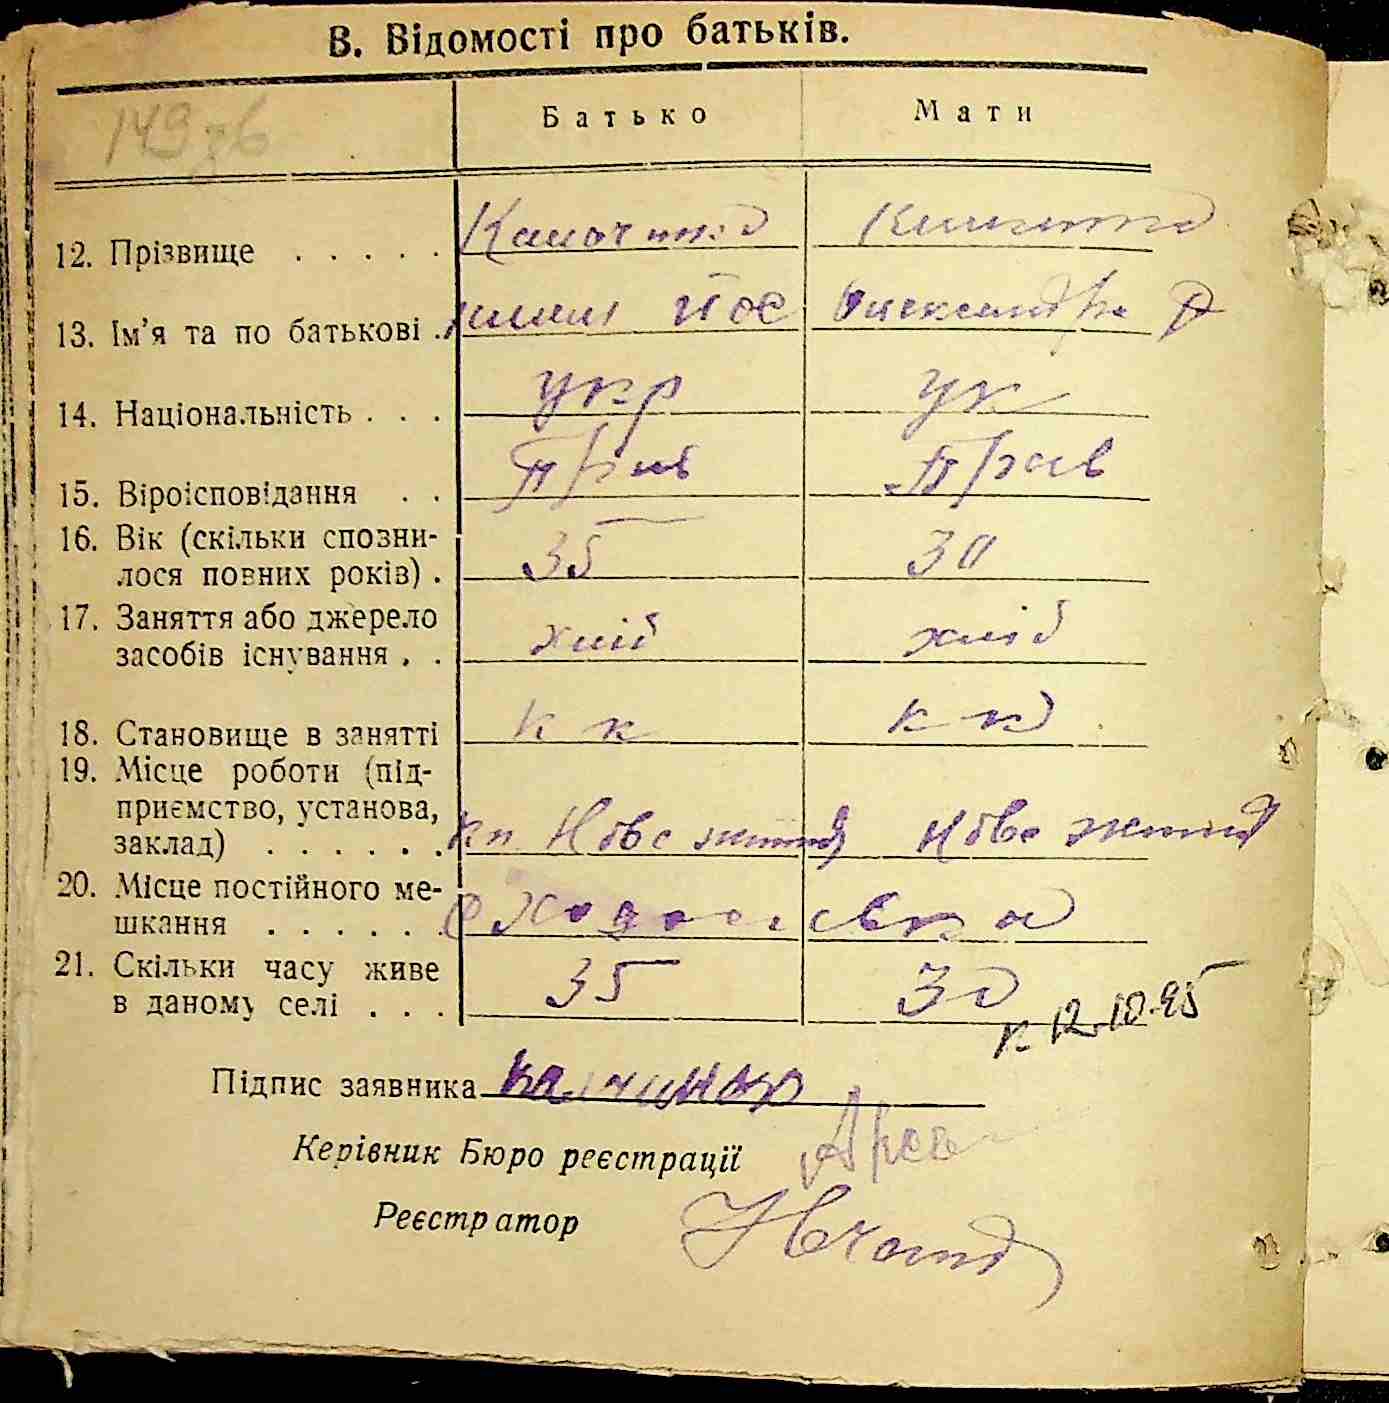 В. Відомості про батьків.
149зв
Батько Мати
12. Прізвище . . . . .
13. Ім'я та по батькові . Йос Олександра
14. Національність . . . укр ук
15. Віроісповідання . . Прав Прав
16. Вік (скільки сповни-
лося повних років) . 35 30
17. Заняття або джерело
засобів існування . . хліб хліб
18. Становище в занятті к к к к
19. Місце роботи (під-
приємство, установа,
заклад) . . . . . . кп Нове життя Нове життя
20. Місце постійного ме-
шкання . . . . . .
21. Скільки часу живе
в даному селі . . . 35 30
к 12.10.95
Підпис заявника
Керівник Бюро реєстрації
Реєстратор